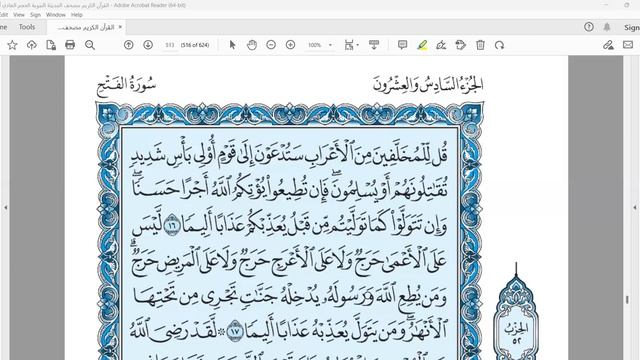 القرآن الكريم مصحف المدينة النبوية الحجم العادي - Adobe Acrobat Reader (64-bit)
View Sign Window Help
Tools
القرآن الكريم مصحف...
Sign
513 (516 of 624) 100%
الجزء السادس والعشرون
سورة الفتح
قُل لِّلْمُخَلَّفِينَ مِنَ ٱلْأَعْرَابِ سَتُدْعَوْنَ إِلَىٰ قَوْمٍ أُو۟لِى بَأْسٍ شَدِيدٍ
تُقَٰتِلُونَهُمْ أَوْ يُسْلِمُونَ ۖ فَإِن تُطِيعُوا۟ يُؤْتِكُمُ ٱللَّهُ أَجْرًا حَسَنًا ۖ
وَإِن تَتَوَلَّوْا۟ كَمَا تَوَلَّيْتُم مِّن قَبْلُ يُعَذِّبْكُمْ عَذَابًا أَلِيمًا ١٦ لَّيْسَ
عَلَى ٱلْأَعْمَىٰ حَرَجٌ وَلَا عَلَى ٱلْأَعْرَجِ حَرَجٌ وَلَا عَلَى ٱلْمَرِيضِ حَرَجٌ ۗ
وَمَن يُطِعِ ٱللَّهَ وَرَسُولَهُۥ يُدْخِلْهُ جَنَّٰتٍ تَجْرِى مِن تَحْتِهَا
ٱلْأَنْهَٰرُ ۖ وَمَن يَتَوَلَّ يُعَذِّبْهُ عَذَابًا أَلِيمًا ١٧ ۞ لَّقَدْ رَضِىَ ٱللَّهُ
الحزب
٥٢